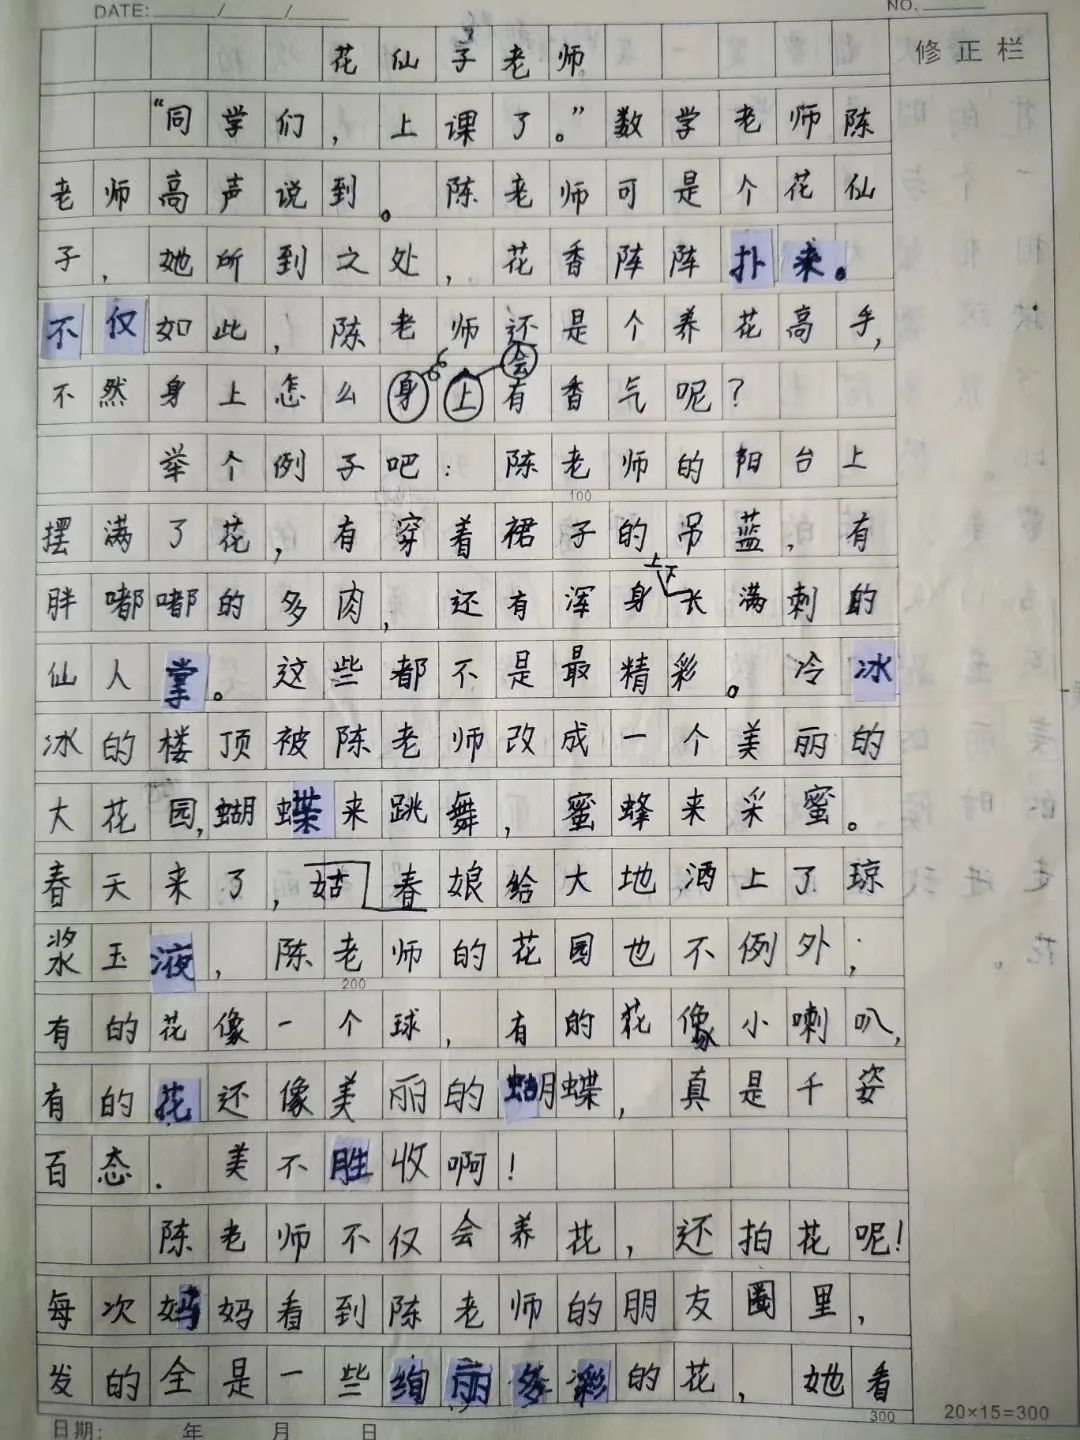 DATE: / /
NO.
花仙子老师
修正栏
“同学们，上课了。”数学老师陈
老师高声说到。陈老师可是个花仙
子，她所到之处，花香阵阵扑来。
不仅如此，陈老师还是个养花高手，
会
不然身上怎么身上有香气呢？
举个例子吧：陈老师的阳台上
100
摆满了花，有穿着裙子的吊蓝，有
上下
胖嘟嘟的多肉，还有浑身长满刺的
仙人掌。这些都不是最精彩。冷冰
冰的楼顶被陈老师改成一个美丽的
大花园，蝴蝶来跳舞，蜜蜂来采蜜。
春天来了，姑春娘给大地洒上了琼
浆玉液，陈老师的花园也不例外；
200
有的花像一个球，有的花像小喇叭，
有的花还像美丽的蝴蝶，真是千姿
百态．美不胜收啊！
陈老师不仅会养花，还拍花呢！
每次妈妈看到陈老师的朋友圈里，
发的全是一些绚丽多彩的花，她看
300
20×15=300
日期： 年 月 日